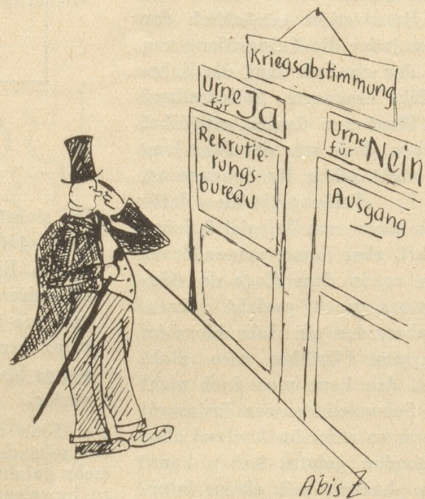 Kriegsabstimmung
Urne
für Ja
Rekrutie-
rungs-
bureau
Urne
für Nein
Ausgang
Abis Z